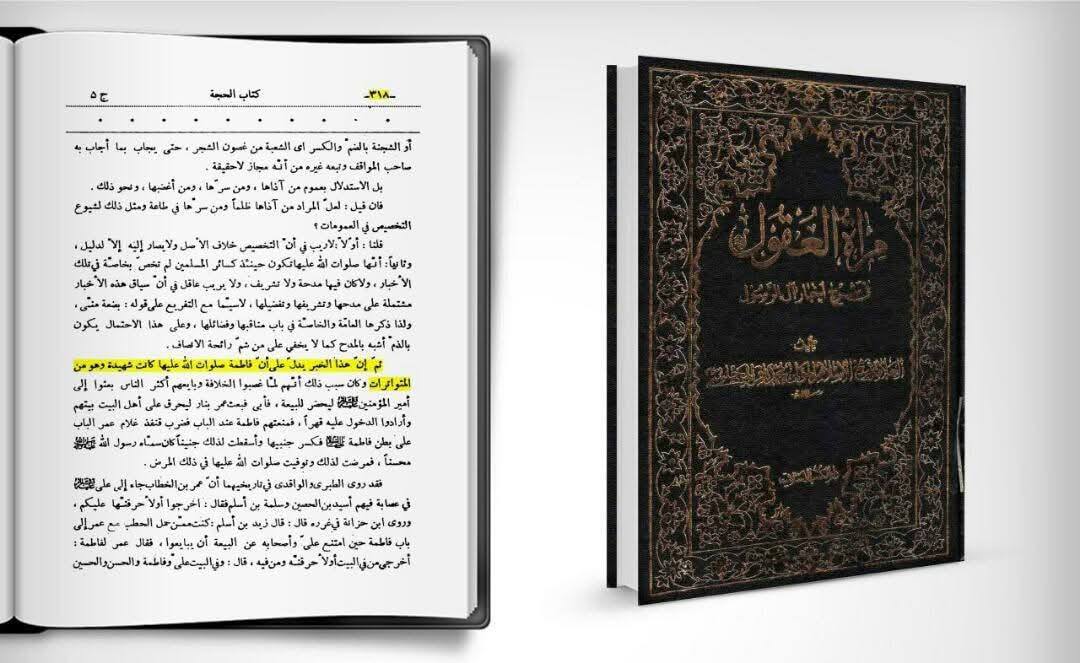 ج ۵ كتاب الحجة -٣١٨-
أو الشجنة بالضمّ والكسر اى الشعبة من غصون الشجر ، حتى يجاب بما أجاب به
صاحب المواقف وتبعه غيره من أنّه مجاز لاحقيقة .
بل الاستدلال بعموم من آذاها ، ومن سرّها ، ومن أغضبها ، ونحو ذلك .
فان قيل : لعلّ المراد من آذاها ظلماً ومن سرّها في طاعة ومثل ذلك لشيوع
التخصيص في العمومات ؟
قلنا : أوّلاً : لاريب في أنّ التخصيص خلاف الأصل ولايصار إليه إلاّ لدليل ،
وثانياً: أنّها صلوات الله عليها تكون حينئذ كسائر المسلمين لم تخصّ بخاصّة في تلك
الأخبار ، ولاكان فيها مدحة ولا تشريف ، ولا يريب عاقل في أنّ سياق هذه الأخبار
مشتملة على مدحها وتشريفها وتفضيلها ، لاسيّما مع التفريع على قوله : بضعة منّى ،
ولذا ذكرها العامّة والخاصّة في باب مناقبها وفضائلها ، وعلى هذا الاحتمال يكون
بالذمّ أشبه بالمدح كما لا يخفي على من شمّ رائحة الانصاف .
ثمّ إنّ هذا الخبر يدلّ على أنّ فاطمة صلوات الله عليها كانت شهيدة وهو من
المتواترات وكان سبب ذلك أنّهم لمّا غصبوا الخلافة وبايعهم أكثر الناس بعثوا إلى
أمير المؤمنين عليه السلام ليحضر للبيعة ، فأبى فبعث عمر بنار ليحرق على أهل البيت بيتهم
وأرادوا الدخول عليه قهراً ، فمنعتهم فاطمة عند الباب فضرب قنفذ غلام عمر الباب
على بطن فاطمة عليها السلام فكسر جنبيها وأسقطت لذلك جنيناً كان سمّاه رسول الله صلى الله عليه وآله
محسناً ، فمرضت لذلك وتوفيت صلوات الله عليها في ذلك المرض .
فقد روى الطبرى والواقدى في تاريخيهما أنّ عمر بن الخطاب جاء إلى على عليه السلام
في عصابة فيهم أسيد بن الحصين وسلمة بن أسلم فقال : اخرجوا أولأحرقنّها عليكم ،
وروى ابن حزانة في غرره قال : قال زيد بن أسلم : كنت ممّن حمل الحطب مع عمر إلى
باب فاطمة حين امتنع علىّ وأصحابه عن البيعة أن يبايعوا ، فقال عمر لفاطمة :
أخرجى من في البيت أولأحرقنّه ومن فيه ، قال : وفي البيت علىّ وفاطمة والحسن والحسين
مرآة العقول
في شرح أخبار آل الرسول